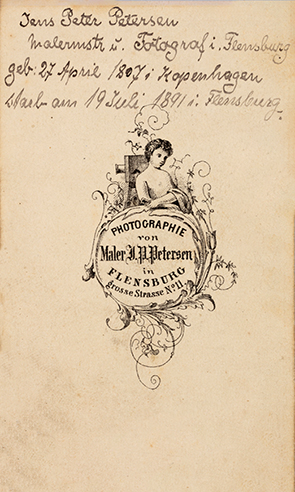 Jens Peter Petersen
Malermstr u. Fotograf i. Flensburg
geb: 27 April 1807 i Kopenhagen
starb am 19 Juli 1891 i. Flensburg.
PHOTOGRAPHIE
von
Maler J. P. Petersen
in
FLENSBURG
grosse Strasse No 11